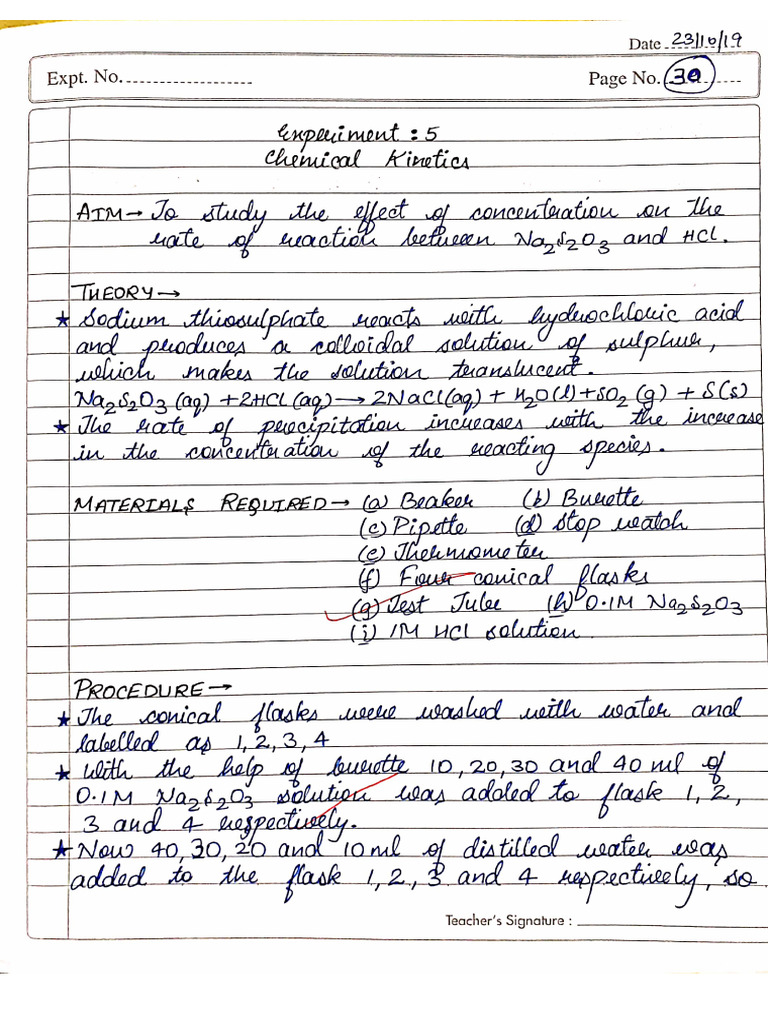 Date 23/10/19
Expt. No.
Page No. 30
Experiment : 5
Chemical Kinetics
AIM → To study the effect of concentration on the
rate of reaction between Na2S2O3 and HCl.
THEORY →
★ Sodium thiosulphate reacts with hydrochloric acid
and produces a colloidal solution of sulphur,
which makes the solution translucent.
Na2S2O3 (aq) + 2HCl (aq) → 2NaCl(aq) + H2O(l) + SO2 (g) + S(s)
★ The rate of precipitation increases with the increase
in the concentration of the reacting species.
MATERIALS REQUIRED → (a) Beaker (b) Burette
(c) Pipette (d) Stop watch
(e) Thermometer
(f) Four conical flasks
(g) Test Tube (h) 0.1M Na2S2O3
(i) 1M HCl solution
PROCEDURE →
★ The conical flasks were washed with water and
labelled as 1, 2, 3, 4
★ With the help of burette 10, 20, 30 and 40 ml of
0.1M Na2S2O3 solution was added to flask 1, 2,
3 and 4 respectively.
★ Now 40, 30, 20 and 10ml of distilled water was
added to the flask 1, 2, 3 and 4 respectively, so
Teacher's Signature :